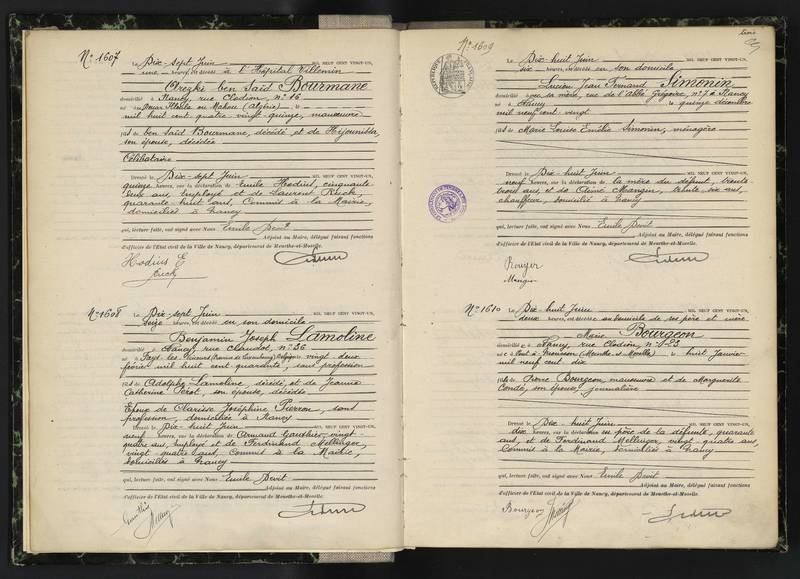 N° 1607
Le Dix-sept Juin MIL NEUF CENT VINGT-UN,
une heures, est décédé à l'Hôpital Villemin
Orezki ben Saïd Bourmane
domicilié à Nancy, rue Clodion, n° 16
né à Douar (Algérie) le
mil huit cent quatre vingt-quinze, manœuvre
fils de ben Saïd Bourmane, décédé et de
son épouse, décédée
Célibataire
Dressé le Dix-sept Juin MIL NEUF CENT VINGT-UN,
quinze heures, sur la déclaration de Emile Hodius, cinquante
ans, employé et de Laurent Ruck,
quarante huit ans, Commis à la Mairie,
domiciliés à Nancy
qui, lecture faite, ont signé avec Nous Emile Devit
Adjoint au Maire, délégué faisant fonctions
d'officier de l'Etat civil de la Ville de Nancy, département de Meurthe-et-Moselle.
Hodius E
Ruck
N° 1608
Le Dix-sept Juin MIL NEUF CENT VINGT-UN,
seize heures, est décédé en son domicile
Benjamin Joseph Lamoline
domicilié à Nancy, rue Claudot, n° 36
né à Fays-les-Veneurs (Province de Luxembourg) Belgique le vingt deux
février mil huit cent quarante, sans profession
fils de Adolphe Lamoline décédé, et de Jeanne
Catherine Pérot, son épouse, décédée
Epoux de Clarisse Joséphine Pierron, sans
profession, domiciliée à Nancy
Dressé le Dix-huit Juin MIL NEUF CENT VINGT-UN,
neuf heures, sur la déclaration de Armand Gauthier vingt-
quatre ans, employé et de Ferdinand Mellinger,
vingt quatre ans, Commis à la Mairie,
domiciliés à Nancy
qui, lecture faite, ont signé avec Nous Emile Devit
Adjoint au Maire, délégué faisant fonctions
d'officier de l'Etat civil de la Ville de Nancy, département de Meurthe-et-Moselle.
N° 1609
Le Dix-huit Juin MIL NEUF CENT VINGT-UN,
six heures, est décédé en son domicile
Lucien Jean Fernand Simonin
domicilié à sa mère, rue de l'Abbé Grégoire, n° 7 à Nancy
né à Nancy le quinze décembre
mil neuf cent vingt
fils de Marie Louise Emilie Simonin, ménagère
Dressé le Dix-huit Juin MIL NEUF CENT VINGT-UN,
neuf heures, sur la déclaration de la mère du défunt, trente
trois ans, et de Mangin, trente six ans,
chauffeur, domicilié à Nancy
qui, lecture faite, ont signé avec Nous Emile Devit
Adjoint au Maire, délégué faisant fonctions
d'officier de l'Etat civil de la Ville de Nancy, département de Meurthe-et-Moselle.
Mangin
N° 1610
Le Dix-huit Juin MIL NEUF CENT VINGT-UN,
deux heures, est décédée au domicile de ses père et mère
Marie Bourgeon
domiciliée à Nancy, rue Clodion, n°
née à Pont à Mousson (Meurthe et Moselle) le huit Janvier
mil neuf cent dix
fille de Pierre Bourgeon, manœuvre et de Marguerite
Condé, son épouse, journalière
Dressé le Dix-huit Juin MIL NEUF CENT VINGT-UN,
dix heures, sur la déclaration du père de la défunte, quarante
ans, et de Ferdinand Mellinger, vingt quatre ans,
Commis à la Mairie, domiciliés à Nancy
qui, lecture faite, ont signé avec Nous Emile Devit
Adjoint au Maire, délégué faisant fonctions
d'officier de l'Etat civil de la Ville de Nancy, département de Meurthe-et-Moselle.
Bourgeon